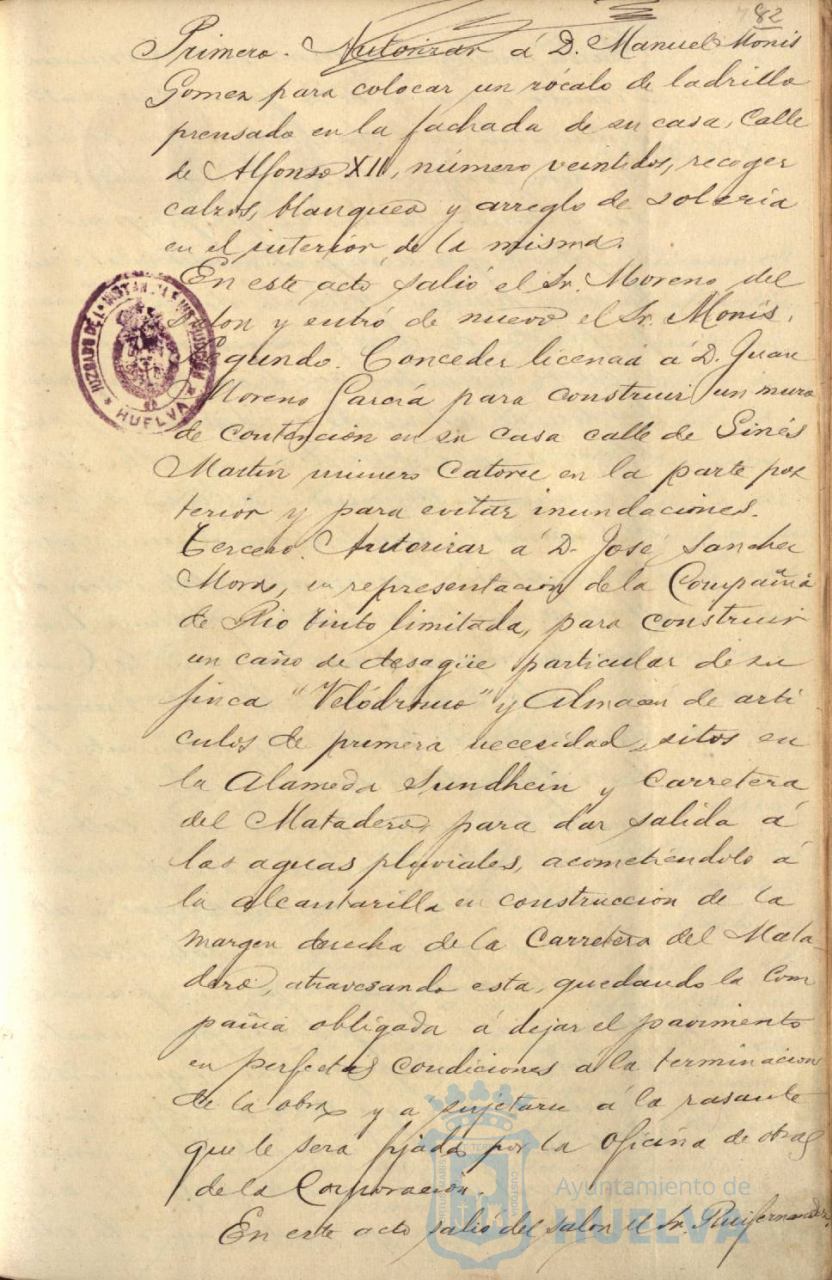 82
Primero. Autorizar á D. Manuel Monis
Gomez para colocar un zócalo de ladrillo
prensado en la fachada de su casa, Calle
de Alfonso XII, número veintidos, recoger
calzos, blanqueo y arreglo de solería
en el interior de la misma.
En este acto salió el Sr. Moreno del
Salon y entró de nuevo el Sr. Monis.
Segundo. Conceder licencia á D. Juan
Moreno García para construir un muro
de contención en su casa calle de Ginés
Martin número Catorce en la parte pos
terior y para evitar inundaciones.
Tercero. Autorizar á D. José Sanchez
Mora, en representación de la Compañía
de Rio Tinto limitada, para construir
un caño de desagüe particular de su
finca "Velódromo" y Almacén de arti
culos de primera necesidad, sitos en
la Alameda Sundhein y Carretera
del Matadero, para dar salida á
las aguas pluviales, acometiéndolo á
la alcantarilla en construccion de la
margen derecha de la Carretera del Mata-
dero, atravesando esta, quedando la Com
pañia obligada á dejar el pavimento
en perfectas condiciones á la terminacion
de la obra y a sujetarse á la rasante
que le sera fijada por la oficina de obras
de la Corporación.
En este acto salió del salon el Sr. Ruifernandez
JUZGADO DE 1ª INSTANCIA E INSTRUCCION
* HUELVA *
Ayuntamiento de
HUELVA